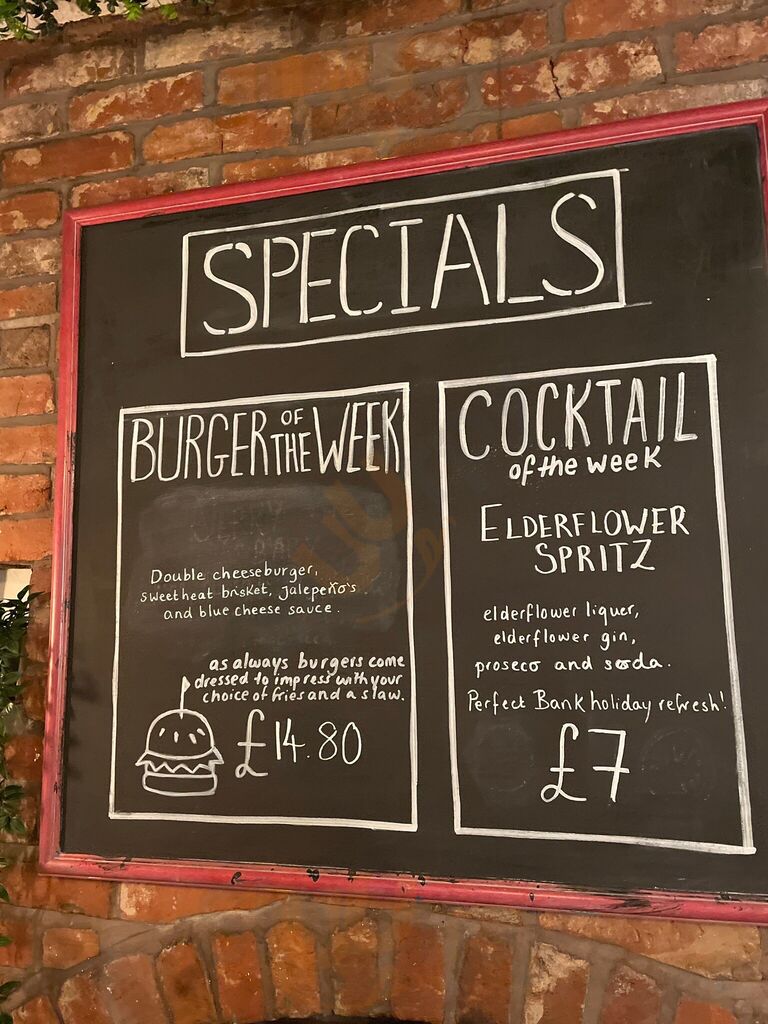 SPECIALS
BURGER OF THE WEEK
Double cheeseburger,
sweetheat brisket, jalepeño's
and blue cheese sauce.
as always burgers come
dressed to impress with your
choice of fries and a slaw.
£14.80
COCKTAIL
of the week
ELDERFLOWER
SPRITZ
elderflower liquer,
elderflower gin,
proseco and soda.
Perfect Bank holiday refresh!
£7